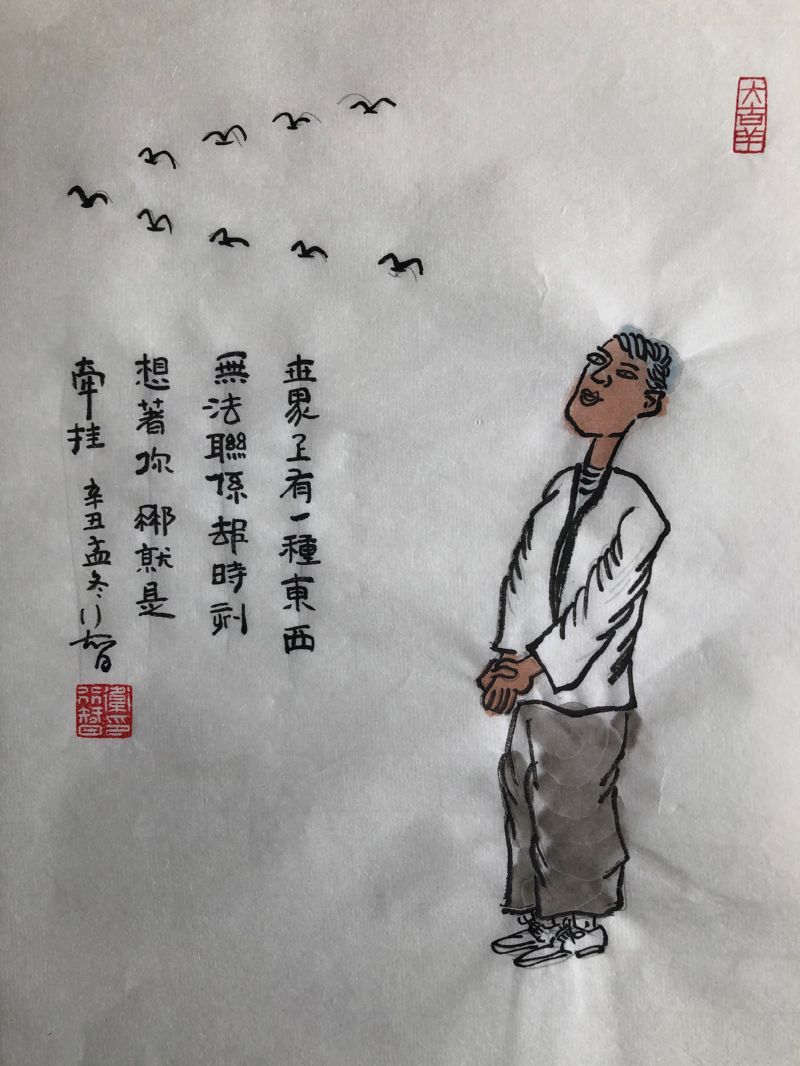 大吉羊
世界上有一種東西
無法聯係却時刻
想著你 那就是
牽挂 辛丑孟冬行智
衛印行智